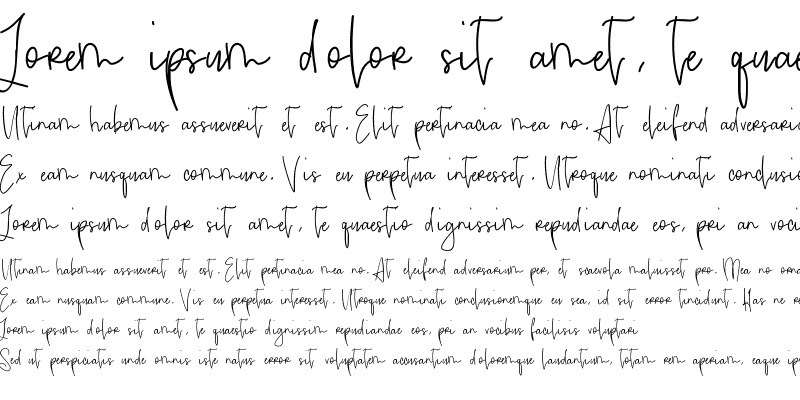 Lorem ipsum dolor sit amet, te quae
Utinam habemus assueverit et est. Elit pertinacia mea no. At eleifend adversariu
Ex eam nusquam commune. Vis eu perpetua interesset. Utroque nominati conclusio
Lorem ipsum dolor sit amet, te quaestio dignissim repudiandae eos, pri an voci
Utinam habemus assueverit et est. Elit pertinacia mea no. At eleifend adversarium per, et scaevola maluisset pro. Mea no orna
Ex eam nusquam commune. Vis eu perpetua interesset. Utroque nominati conclusionemque eu sea, id sit error tincidunt. Has ne re
Lorem ipsum dolor sit amet, te quaestio dignissim repudiandae eos, pri an vocibus facilisis voluptari
Sed ut perspiciatis unde omnis iste natus error sit voluptatem accusantium doloremque laudantium, totam rem aperiam, eaque ips